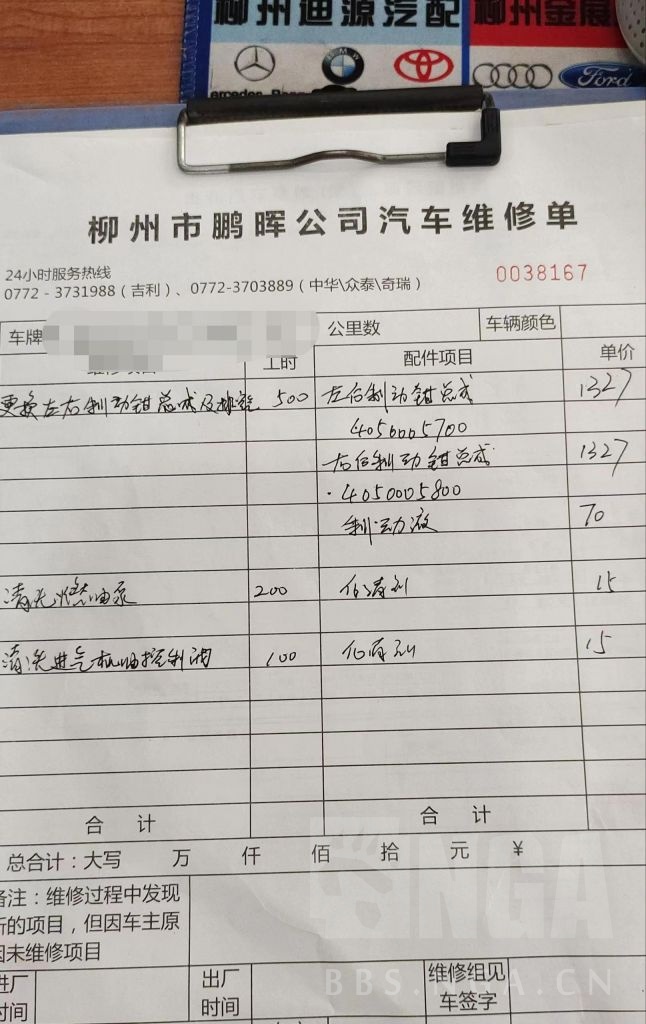 柳州迪源汽配 柳州金展
BMW
Ford
柳州市鹏晖公司汽车维修单
24小时服务热线
0772-3731988（吉利）、0772-3703889（中华\众泰\奇瑞）
0038167
车牌 公里数 车辆颜色
维修项目 工时 配件项目 单价
更换左右制动钳总成及排空 500 左后制动钳总成 1327
4050005700
右后制动钳总成 1327
4050005800
制动液 70
清洗燃油泵 200 化清剂 15
清洗进气机油控制阀 100 化清剂 15
合计 合计
总合计：大写 万 仟 佰 拾 元 ¥
备注：维修过程中发现
新的项目，但因车主原
因未维修项目
NGA
BBS.NGA.CN
进厂时间 出厂时间 维修组见车签字